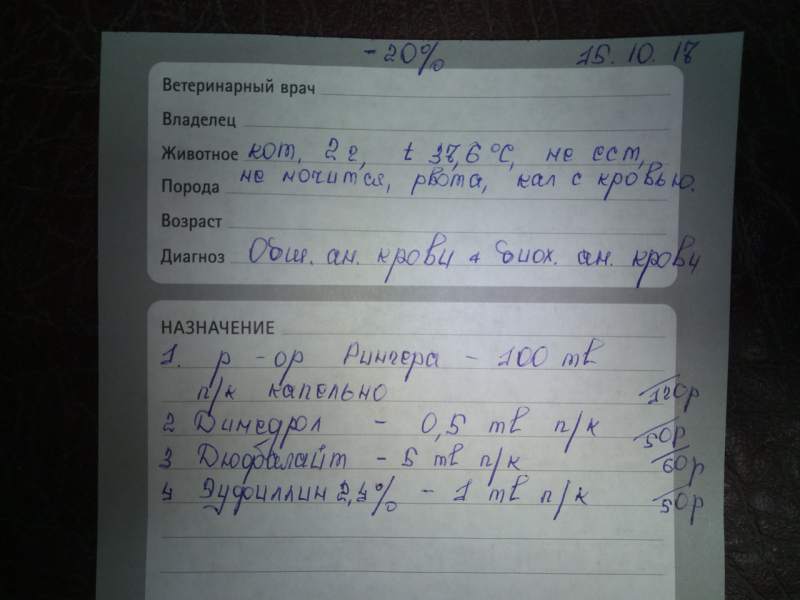 -20% 15.10.17
Ветеринарный врач
Владелец
Животное кот, 2 г, t 37,6 °C, не ест,
Порода не мочится, рвота, кал с кровью.
Возраст
Диагноз Общ. ан. крови + биох. ан. крови
НАЗНАЧЕНИЕ
1. р-ор Рингера - 100 ml
п/к капельно 120р
2 Димедрол - 0,5 ml п/к 50р
3 Дюфалайт - 5 ml п/к 60р
4 Эуфиллин 2,4% - 1 ml п/к 50р